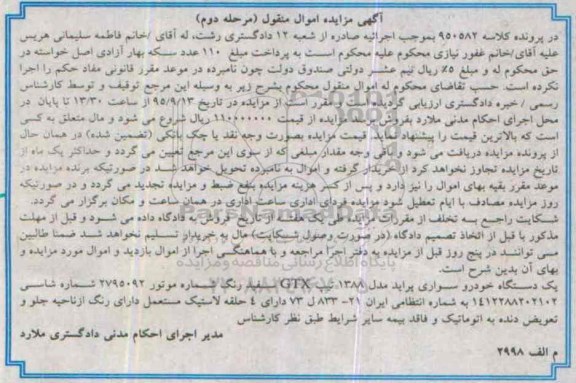 آگهی مزایده اموال منقول (مرحله دوم)
در پرونده کلاسه ۹۵۰۵۸۲ بموجب اجرائیه صادره از شعبه ۱۲ دادگستری رشت، له آقای /خانم فاطمه سلیمانی هریس
علیه آقای/خانم غفور نیازی محکوم علیه محکوم است به پرداخت مبلغ ۱۱۰ عدد سکه بهار آزادی اصل خواسته در
حق محکوم له و مبلغ ۵٪ ریال نیم عشر دولتی صندوق دولت چون نامبرده در موعد مقرر قانونی مفاد حکم را اجرا
نکرده است. حسب تقاضای محکوم له اموال منقول محکوم بشرح زیر به وسیله این مرجع توقیف و توسط کارشناس
رسمی / خبره دادگستری ارزیابی گردیده مقرر است از مزایده در تاریخ ۹۵/۹/۱۳ از ساعت ۱۳/۳۰ تا پایان در
محل اجرای احکام مدنی ملارد بفروش مزایده از قیمت ۱۱۰۰۰۰۰۰۰ ریال شروع می شود و مال متعلق به کسی
است که بالاترین قیمت را پیشنهاد نماید. قیمت مزایده بصورت وجه نقد یا چک بانکی (تضمین شده) در همان حال
از پرونده مزایده دریافت می شود و باقی وجه مقدار مبلغی که از سوی این مرجع تعیین می گردد و حداکثر یک ماه از
تاریخ مزایده تجاوز نخواهد کرد از خریدار گرفته و اموال به نامبرده تحویل خواهد شد در صورتیکه برنده مزایده در
موعد مقرر بقیه بهای اموال را نیز دارد و پس از کسر هزینه مزایده بنفع ضبط و مزایده تجدید می گردد و در صورتیکه
روز مزایده مصادف با ایام تعطیل شود مزایده فردای اداری ساعت اداری در همان ساعت و مکان برگزار می گردد.
شکایت راجع به تخلف از مقررات مزایده ظرف یک هفته از تاریخ فروش به دادگاه داده می شود و قبل از مهلت
مذکور یا قبل از اتخاذ تصمیم دادگاه (در صورت وصول شکایت) مال به خریدار تسلیم نخواهد شد ضمنا طالبین
می توانند در پنج روز قبل از مزایده به دفتر اجرا مراجعه و با هماهنگی اجرا از اموال بازدید و اموال مورد مزایده و
بهای آن بدین شرح است.
یک دستگاه خودرو سواری پراید مدل ۱۳۸۸ تیپ GTX سفید رنگ شماره موتور ۲۷۹۵۰۹۲ شماره شاسی
۱۴۱۲۲۸۸۲۰۲۱۰۲ به شماره انتظامی ایران ۲۱- ۸۳۳ل ۷۳ دارای ۴ حلقه لاستیک مستعمل دارای رنگ ازناحیه جلو و
تعویض دنده به اتوماتیک و فاقد بیمه سایر شرایط طبق نظر کارشناس
مدیر اجرای احکام مدنی دادگستری ملارد
م الف ۲۹۹۸